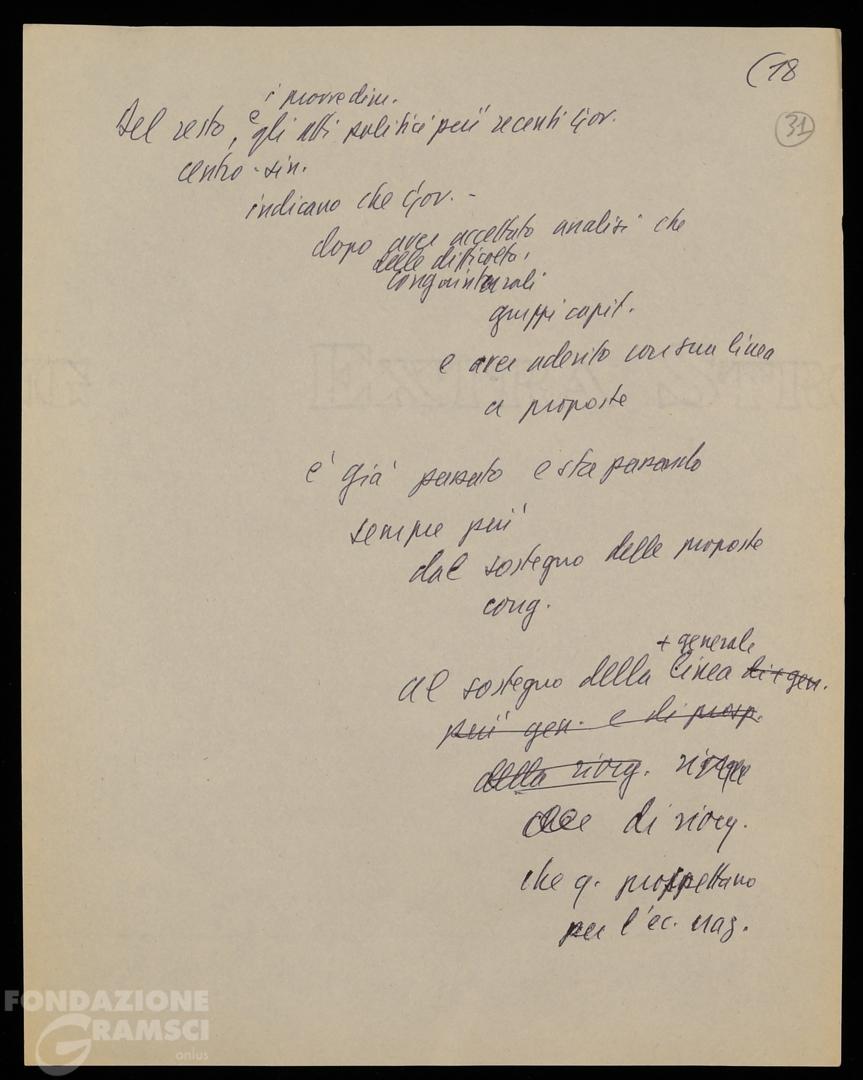 (18
31
i provvedim.
Del resto, e gli atti politici più recenti Gov.
centro-sin.
indicano che Gov. -
dopo aver accettato analisi che
delle difficoltà
congiunturali
gruppi capit.
e aver aderito con sua linea
a proposte
e' già passato e sta passando
sempre più
dal sostegno delle proposte
cong.
+ generale
al sostegno della linea di + gen.
più gen. e di prosp.
della riorg.
di riorg.
che q. prospettano
per l'ec. naz.
FONDAZIONE
GRAMSCI
onlus